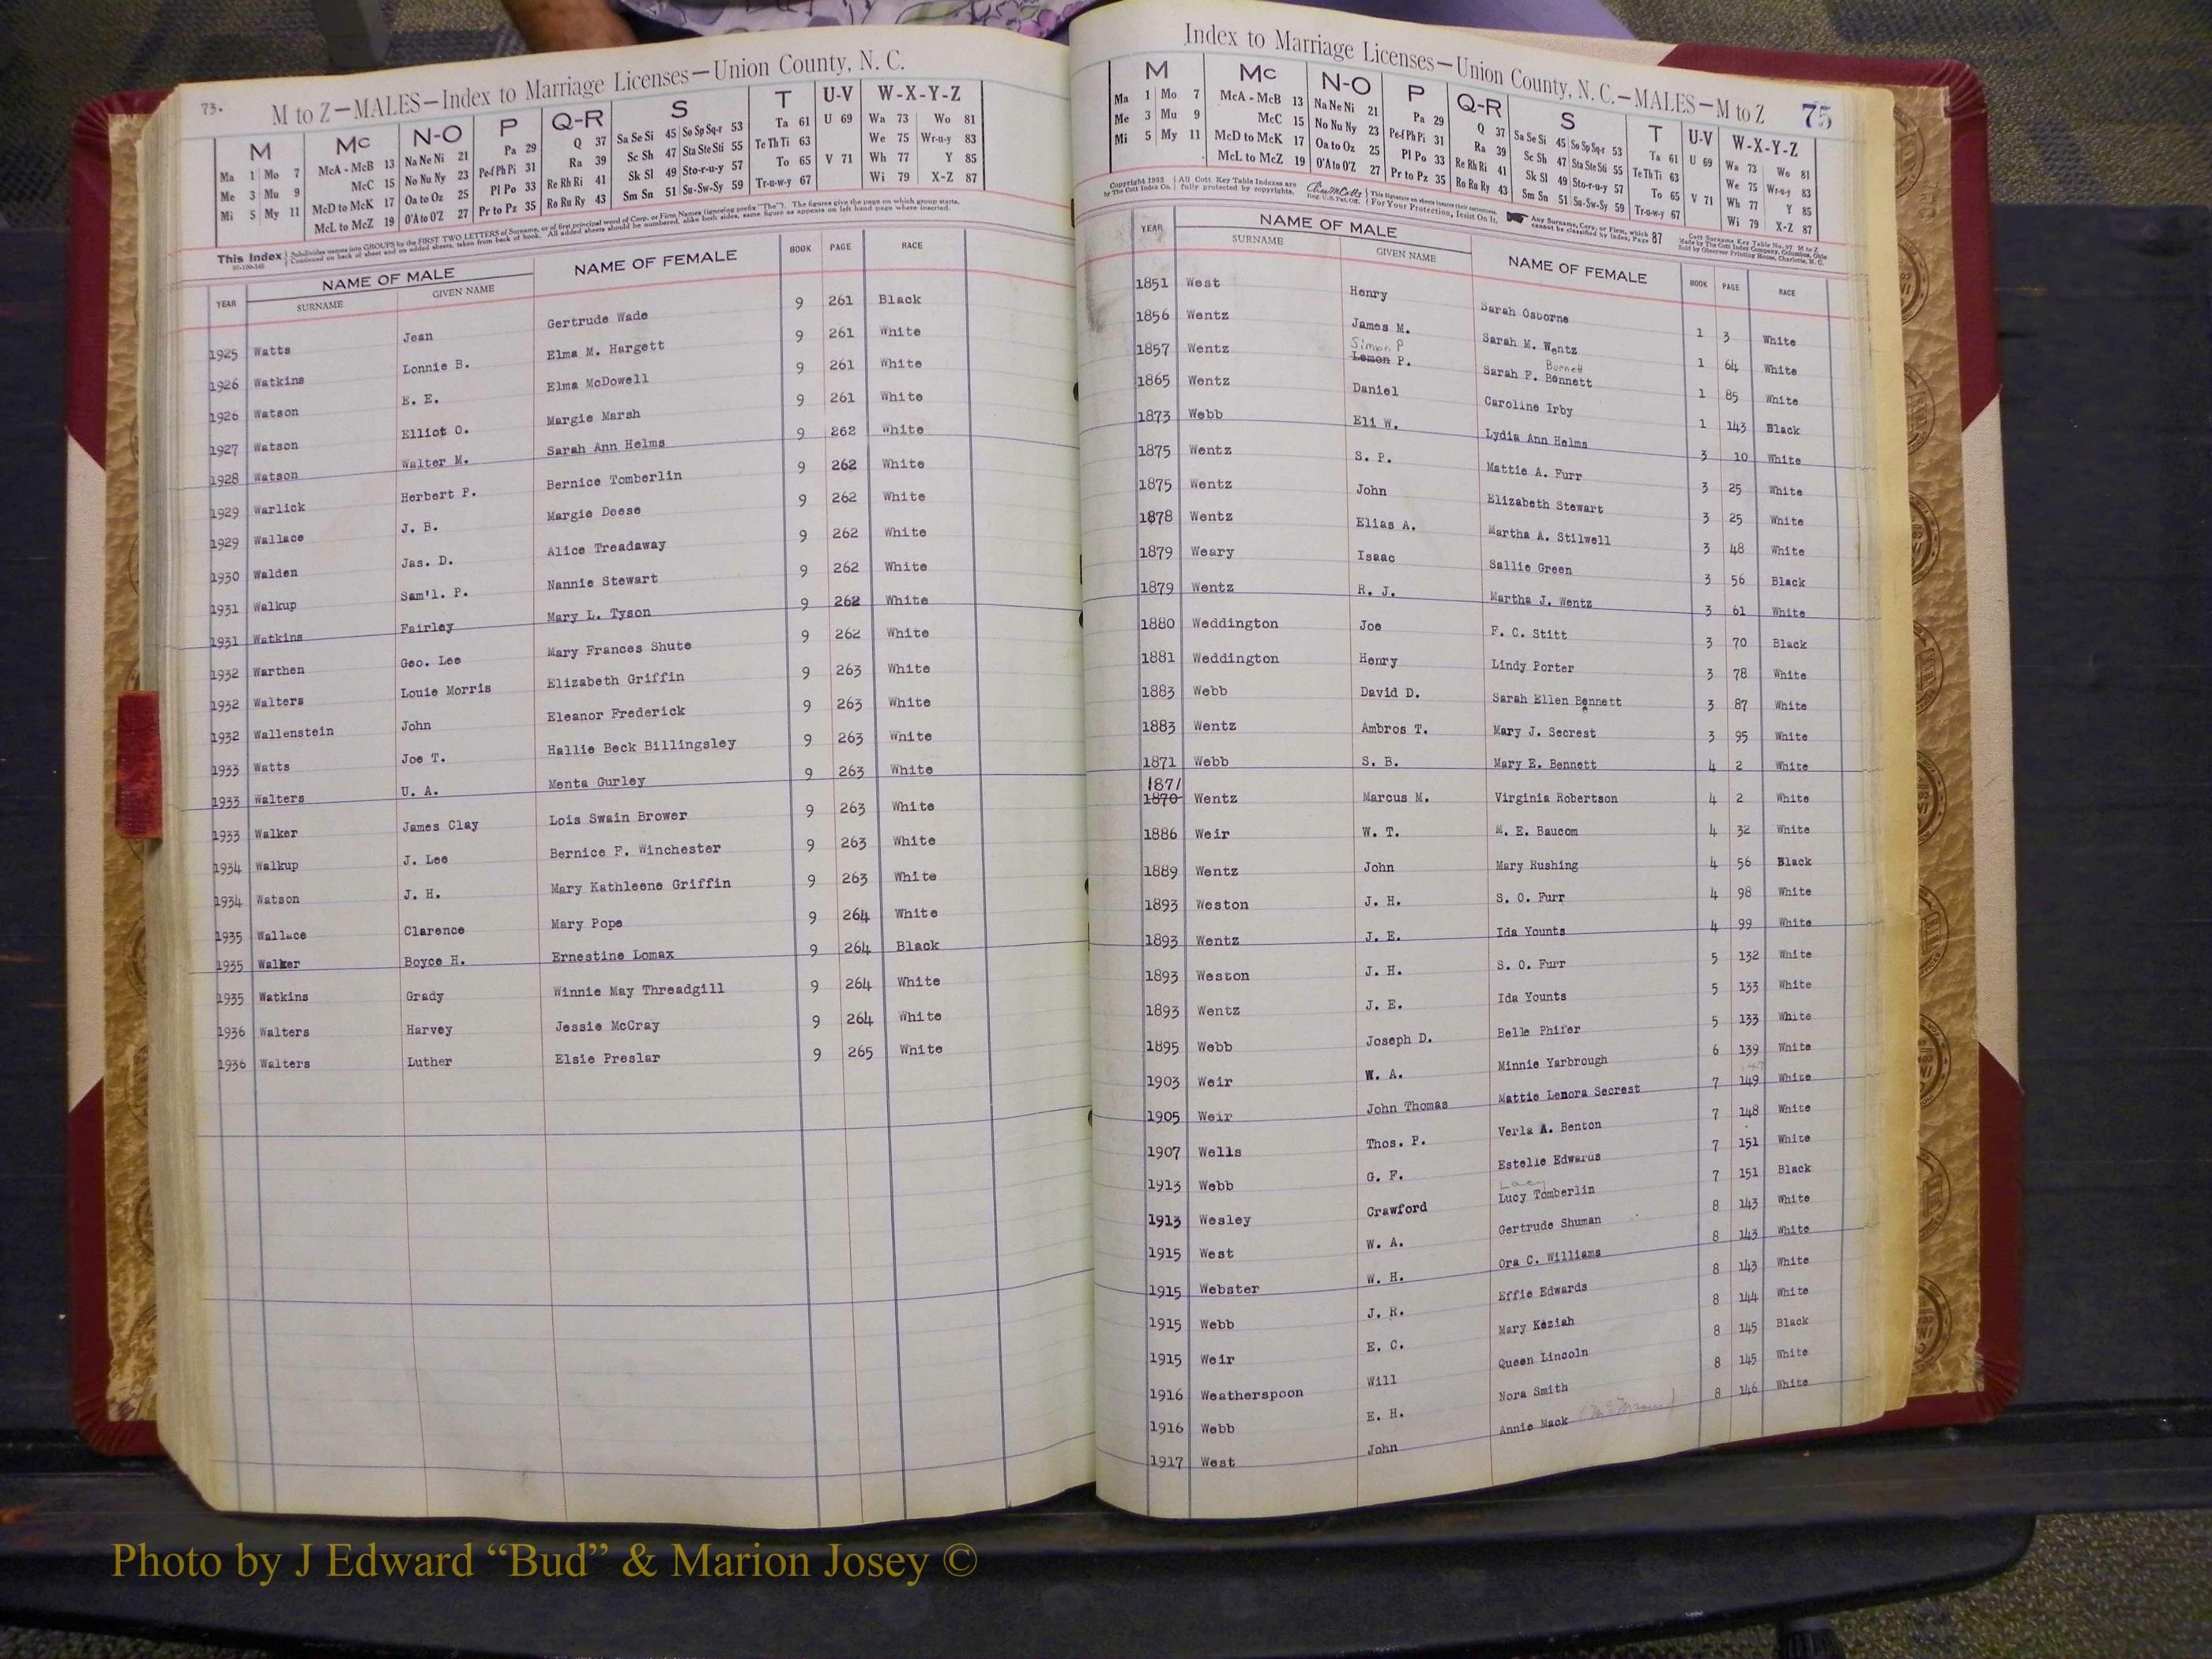 73.
M to Z—MALES—Index to Marriage Licenses—Union County, N. C.
M Mc N-O P Q-R S T U-V W-X-Y-Z
Ma 1 Mo 7 McA - McB 13 Na Ne Ni 21 Pa 29 Q 37 Sa Se Si 45 So Sp Sq-r 53 Ta 61 U 69 Wa 73 Wo 81
Me 3 Mu 9 McC 15 No Nu Ny 23 Pe-f Ph Pi 31 Ra 39 Sc Sh 47 Sta Ste Sti 55 Te Th Ti 63 We 75 Wr-u-y 83
Mi 5 My 11 McD to McK 17 Oa to Oz 25 Pl Po 33 Re Rh Ri 41 Sk Sl 49 Sto-r-u-y 57 To 65 V 71 Wh 77 Y 85
McL to McZ 19 O'A to O'Z 27 Pr to Pz 35 Ro Ru Ry 43 Sm Sn 51 Su-Sw-Sy 59 Tr-u-w-y 67 Wi 79 X-Z 87
This Index Subdivides names into GROUPS by the FIRST TWO LETTERS of Surname, or of first principal word of Corp. or Firm Names (ignoring prefix "The"). The figures give the page on which group starts.
Continued on back of sheet and on added sheets, taken from back of book. All added sheets should be numbered, alike both sides, same figure as appears on left hand page where inserted.
YEAR NAME OF MALE SURNAME GIVEN NAME NAME OF FEMALE BOOK PAGE RACE
1925 Watts Jean Gertrude Wade 9 261 Black
1926 Watkins Lonnie B. Elma M. Hargett 9 261 White
1926 Watson E. E. Elma McDowell 9 261 White
1927 Watson Elliot O. Margie Marsh 9 261 White
1928 Watson Walter M. Sarah Ann Helms 9 262 White
1929 Warlick Herbert P. Bernice Tomberlin 9 262 White
1929 Wallace J. B. Margie Deese 9 262 White
1930 Walden Jas. D. Alice Treadaway 9 262 White
1931 Walkup Sam'l. P. Nannie Stewart 9 262 White
1931 Watkins Fairley Mary L. Tyson 9 262 White
1932 Warthen Geo. Lee Mary Frances Shute 9 262 White
1932 Walters Louie Morris Elizabeth Griffin 9 263 White
1932 Wallenstein John Eleanor Frederick 9 263 White
1933 Watts Joe T. Hallie Beck Billingsley 9 263 White
1933 Walters U. A. Menta Gurley 9 263 White
1933 Walker James Clay Lois Swain Brower 9 263 White
1934 Walkup J. Lee Bernice F. Winchester 9 263 White
1934 Watson J. H. Mary Kathleene Griffin 9 263 White
1935 Wallace Clarence Mary Pope 9 264 White
1935 Walker Boyce H. Ernestine Lomax 9 264 Black
1935 Watkins Grady Winnie May Threadgill 9 264 White
1936 Walters Harvey Jessie McCray 9 264 White
1936 Walters Luther Elsie Preslar 9 265 White
Index to Marriage Licenses—Union County, N. C.—MALES—M to Z 75
M Mc N-O P Q-R S T U-V W-X-Y-Z
Ma 1 Mo 7 McA - McB 13 Na Ne Ni 21 Pa 29 Q 37 Sa Se Si 45 So Sp Sq-r 53 Ta 61 U 69 Wa 73 Wo 81
Me 3 Mu 9 McC 15 No Nu Ny 23 Pe-f Ph Pi 31 Ra 39 Sc Sh 47 Sta Ste Sti 55 Te Th Ti 63 We 75 Wr-u-y 83
Mi 5 My 11 McD to McK 17 Oa to Oz 25 Pl Po 33 Re Rh Ri 41 Sk Sl 49 Sto-r-u-y 57 To 65 V 71 Wh 77 Y 85
McL to McZ 19 O'A to O'Z 27 Pr to Pz 35 Ro Ru Ry 43 Sm Sn 51 Su-Sw-Sy 59 Tr-u-w-y 67 Wi 79 X-Z 87
Copyright by The Cott Index Co. All Cott Key Table Indexes are fully protected by copyrights. Reg. U.S. Pat. Off. For Your Protection, Insist On It. Any Surname, Corp. or Firm, which cannot be classified by index, Page 87
Made by The Cott Index Company, Columbus, Ohio
Sold by Observer Printing House, Charlotte, N. C.
YEAR NAME OF MALE SURNAME GIVEN NAME NAME OF FEMALE BOOK PAGE RACE
1851 West Henry Sarah Osborne 1 3 White
1856 Wentz James M. Sarah M. Wentz 1 64 White
Simon P
1857 Wentz Lemon P. Sarah F. Bennett 1 85 White
1865 Wentz Daniel Caroline Irby 1 143 Black
1873 Webb Eli W. Lydia Ann Helms 3 10 White
1875 Wentz S. P. Mattie A. Furr 3 25 White
1875 Wentz John Elizabeth Stewart 3 25 White
1878 Wentz Elias A. Martha A. Stilwell 3 48 White
1879 Weary Isaac Sallie Green 3 56 Black
1879 Wentz R. J. Martha J. Wentz 3 61 White
1880 Weddington Joe F. C. Stitt 3 70 Black
1881 Weddington Henry Lindy Porter 3 78 White
1883 Webb David D. Sarah Ellen Bennett 3 87 White
1883 Wentz Ambros T. Mary J. Secrest 3 95 White
1871 Webb S. B. Mary E. Bennett 4 2 White
1871
1870 Wentz Marcus M. Virginia Robertson 4 2 White
1886 Weir W. T. M. E. Baucom 4 32 White
1889 Wentz John Mary Rushing 4 56 Black
1893 Weston J. H. S. O. Furr 4 98 White
1893 Wentz J. E. Ida Younts 4 99 White
1893 Weston J. H. S. O. Furr 5 132 White
1893 Wentz J. E. Ida Younts 5 133 White
1895 Webb Joseph D. Belle Phifer 5 133 White
1903 Weir W. A. Minnie Yarbrough 6 139 White
1905 Weir John Thomas Mattie Lenora Secrest 7 149 White
1907 Wells Thos. P. Verla A. Benton 7 148 White
1913 Webb G. F. Estelle Edwards 7 151 White
Lacy
1913 Wesley Crawford Lucy Tomberlin 7 151 Black
1915 West W. A. Gertrude Shuman 8 143 White
1915 Webster W. H. Ora C. Williams 8 143 White
1915 Webb J. R. Effie Edwards 8 143 White
1915 Weir E. C. Mary Keziah 8 144 White
1916 Weatherspoon Will Queen Lincoln 8 145 Black
1916 Webb E. H. Nora Smith 8 145 White
1917 West John Annie Mack 8 146 White
Photo by J Edward “Bud” & Marion Josey ©